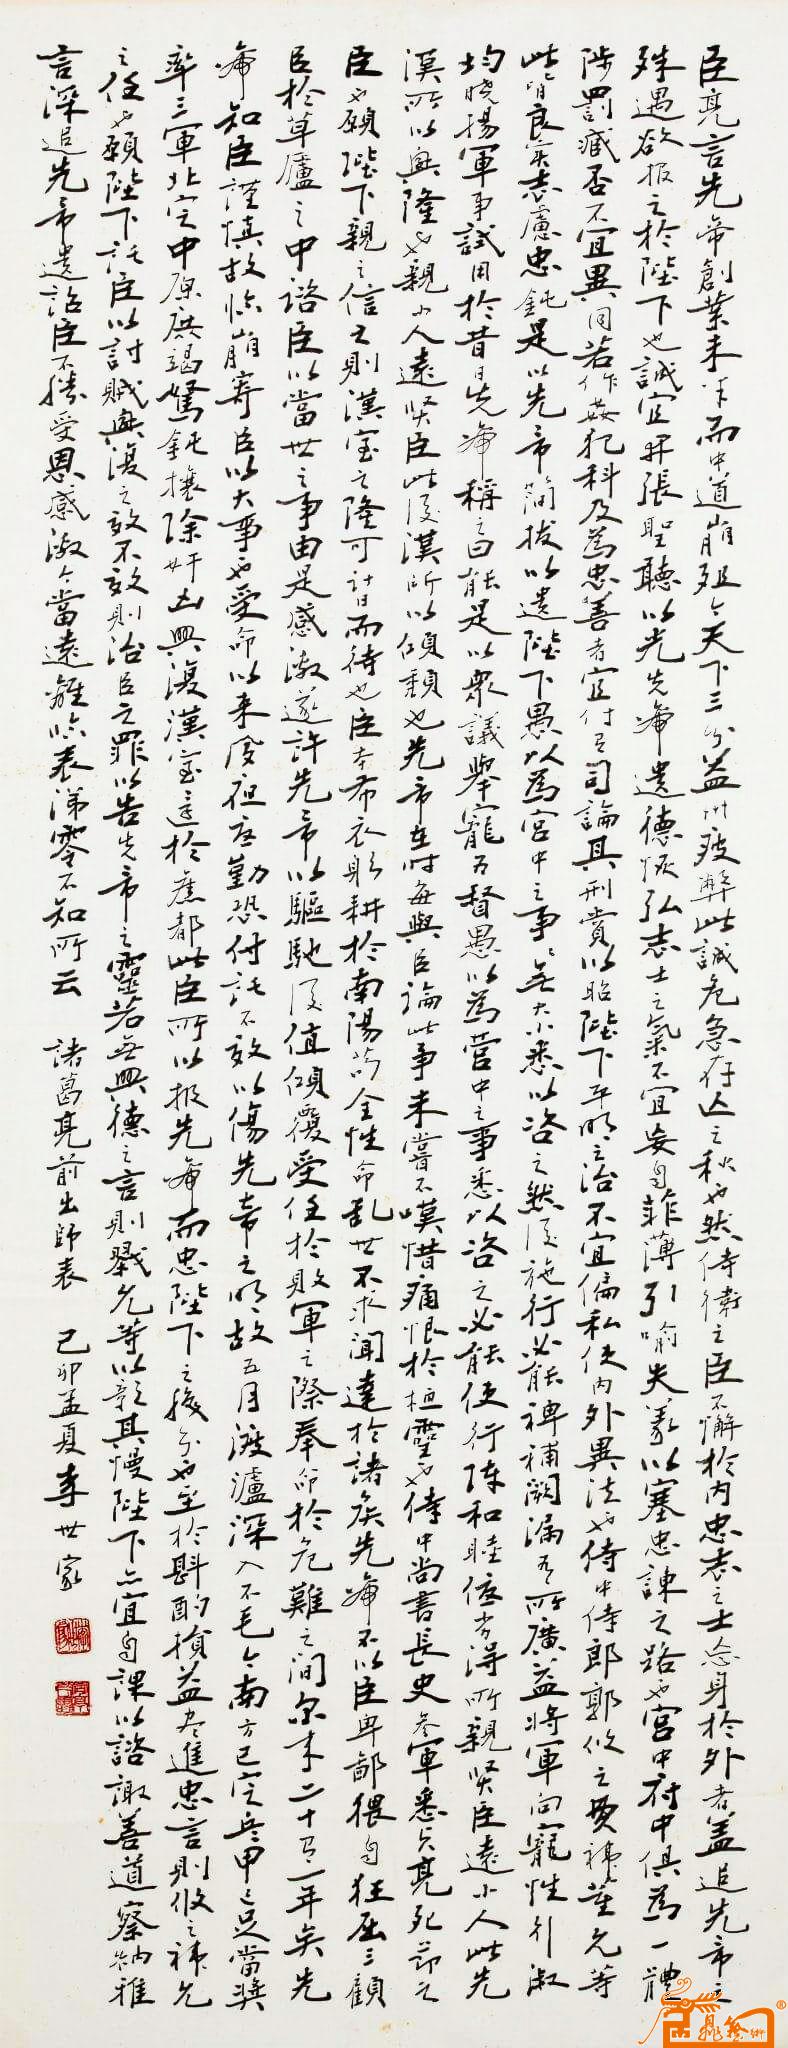 臣亮言先帝創業未半而中道崩殂今天下三分益州疲弊此誠危急存亡之秋也然侍衛之臣不懈於內忠志之士忘身於外者蓋追先帝之
殊遇欲报之於陛下也誠宜開張聖聽以光先帝遺德恢弘志士之氣不宜妄自菲薄引喻失義以塞忠諫之路也宮中府中俱為一體
陟罰臧否不宜異同若作姦犯科及為忠善者宜付有司論其刑賞以昭陛下平明之治不宜偏私使內外異法也侍中侍郎郭攸之費禕董允等
此皆良實志慮忠純是以先帝簡拔以遺陛下愚以為宮中之事事無大小悉以咨之然後施行必能裨補闕漏有所廣益將軍向寵性行淑
均曉揚軍事試用於昔日先帝稱之曰能是以眾議舉寵為督愚以為營中之事悉以咨之必能使行陣和睦優劣得所親賢臣遠小人此先
漢所以興隆也親小人遠賢臣此後漢所以傾頹也先帝在時每與臣論此事未嘗不嘆惜痛恨於桓靈也侍中尚書長史參軍悉貞亮死節之
臣也願陛下親之信之則漢室之隆可計日而待也臣本布衣躬耕於南陽苟全性命亂世不求聞達於諸侯先帝不以臣卑鄙猥自狂屈三顧
臣於草廬之中諮臣以當世之事由是感激遂許先帝以驅馳後值傾覆受任於敗軍之際奉命於危難之間爾來二十有一年矣先
帝知臣謹慎故臨崩寄臣以大事也受命以來夙夜憂勤恐付託不效以傷先帝之明故五月渡瀘深入不毛今南方已定兵甲已足當獎
率三軍北定中原庶竭駑鈍攘除奸凶興復漢室還於舊都此臣所以报先帝而忠陛下之職分也至於斟酌損益盡進忠言則攸之禕允
之任也願陛下託臣以討賊興復之效不效則治臣之罪以告先帝之靈若無興德之言則戮允等以彰其慢陛下亦宜自課以諮諏善道察納雅
言深追先帝遺詔臣不勝受恩感激今當遠離臨表涕零不知所云 諸葛亮前出師表 己卯孟夏李世家